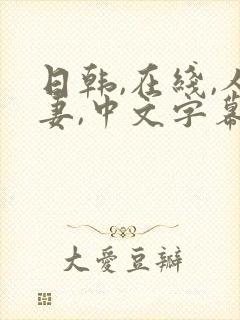 日韩,在线,人
妻,中文字幕
大愛豆瓣